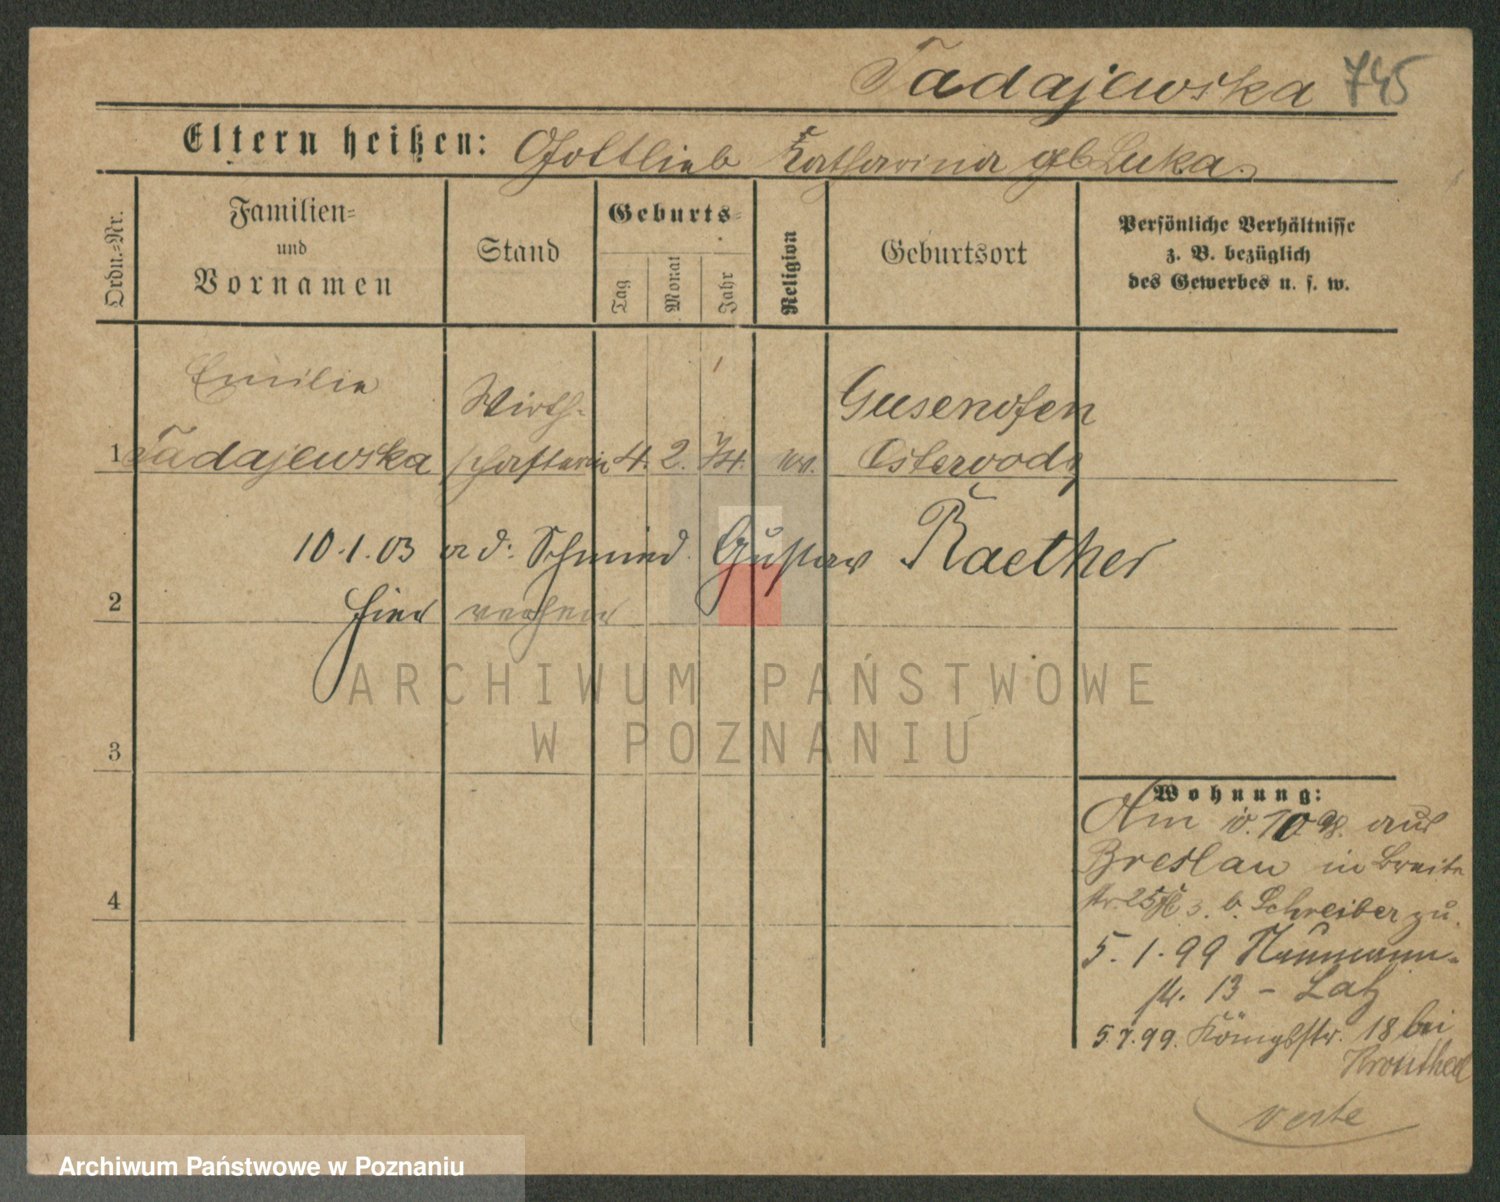 Tadajewska 745
Eltern heißen: Gottlieb Katharina geb Luka.
Ordn.=Nr.
Familien=
und
Vornamen
Stand
Geburts=
Tag
Monat
Jahr
Religion
Geburtsort
Persönliche Verhältnisse
z. B. bezüglich
des Gewerbes u. s. w.
Emilie
Wirth=
Gusenofen
1 Tadajewska schafterin 4. 2. 74. ev. Osterode
10.1.03 a. d. Schmied Gustav Raether
2 hier verheir
3
4
Wohnung:
Am 10. 98. aus
Breslau in Breite
str. 25 b. Schreiber zu.
5.1.99 Naumann=
str. 13 - Latz
5.7.99. Königsstr. 18 bei
Kronthal
verte
ARCHIWUM PAŃSTWOWE
W POZNANIU
Archiwum Państwowe w Poznaniu